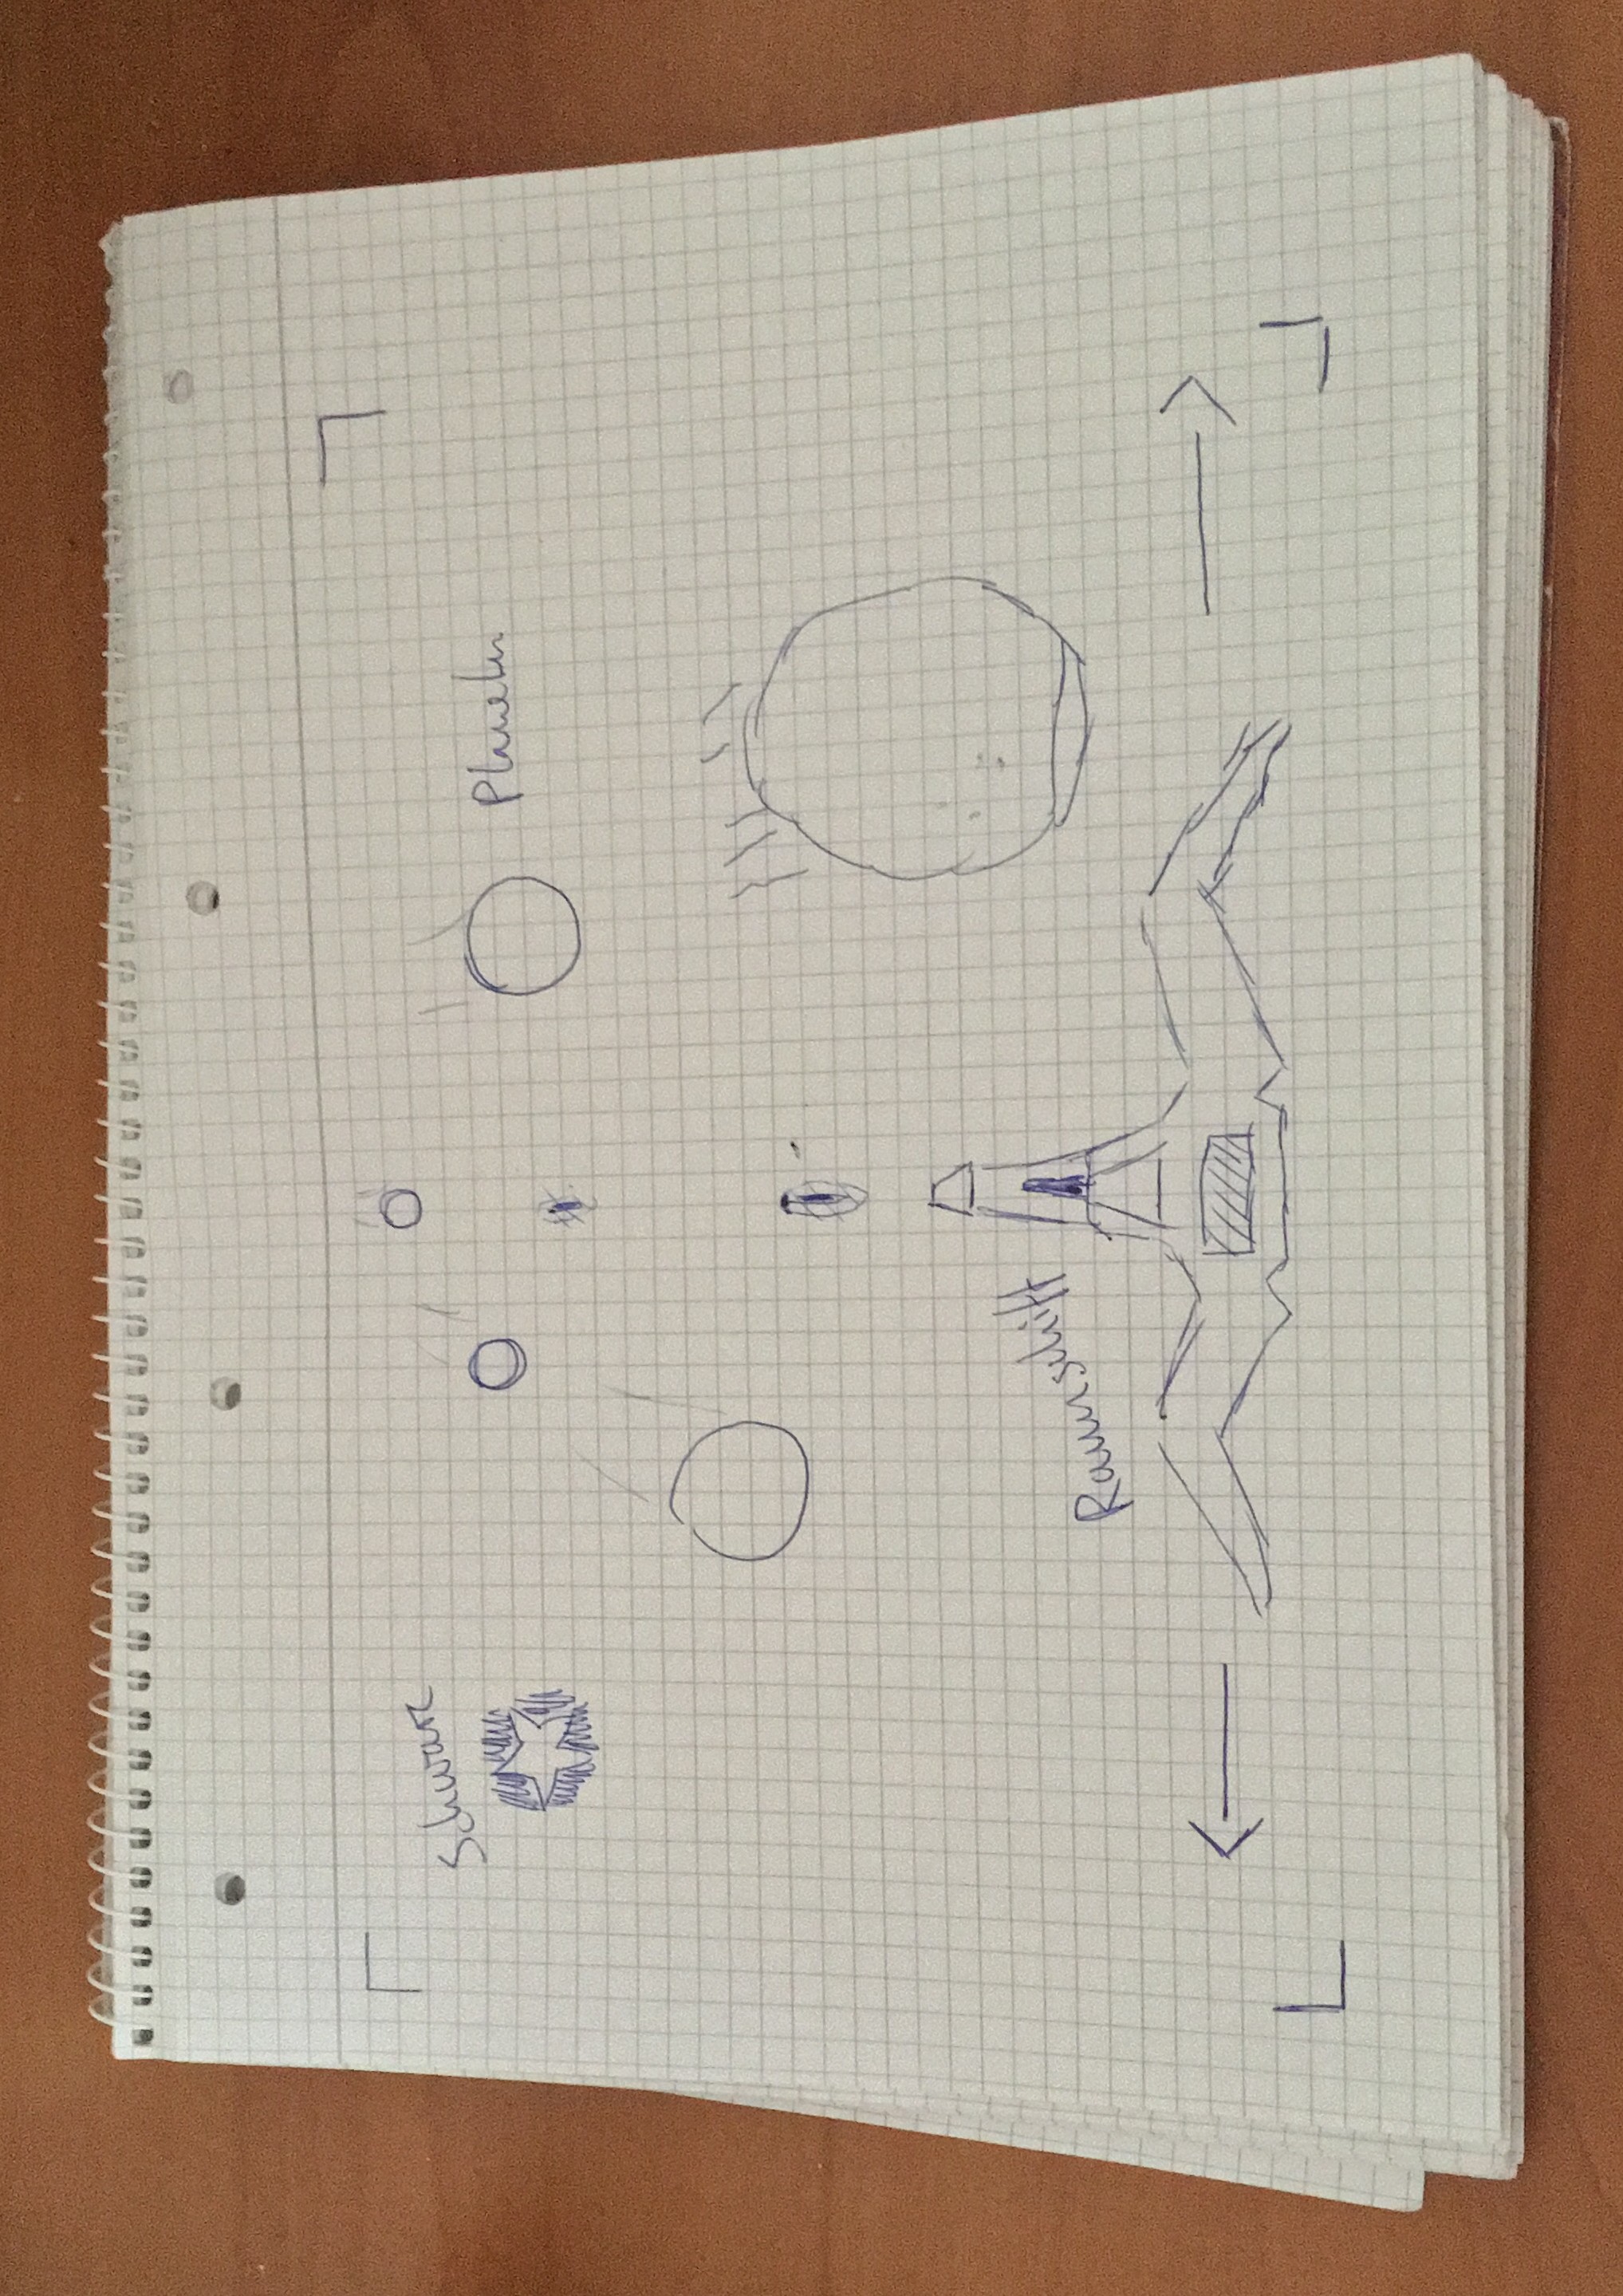 Schwarz
Planeten
Raumschiff